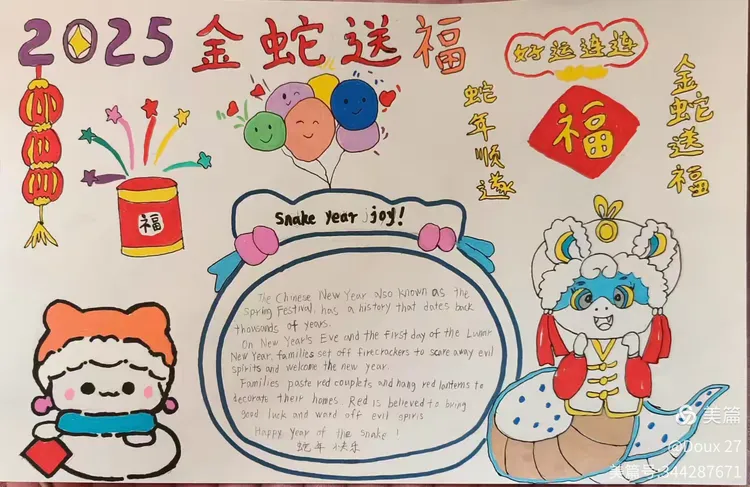 2025 金蛇送福
好运连连
蛇年顺遂
福
金蛇送福
福
Snake Year joy!
The Chinese New Year also known as the
Spring Festival, has a history that dates back
thousands of years.
On New Year's Eve and the first day of the Lunar
New Year, families set off firecrackers to scare away evil
spirits and welcome the new year.
Families paste red couplets and hang red lanterns to
decorate their homes. Red is believed to bring
good luck and ward off evil spiris
Happy Year of the Snake!
蛇年快乐
美篇
@Doux 27
美篇号:344287671